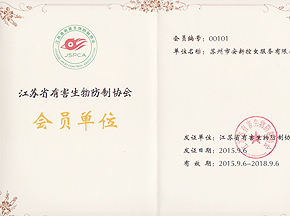 JSPCA
江苏省有害生物防制协会
会员单位
会员编号：00101
单位名称：苏州市安新控虫服务有限
发证单位：江苏省有害生物防制协
发证日期：2015.9.6
有效期：2015.9.6-2018.9.6